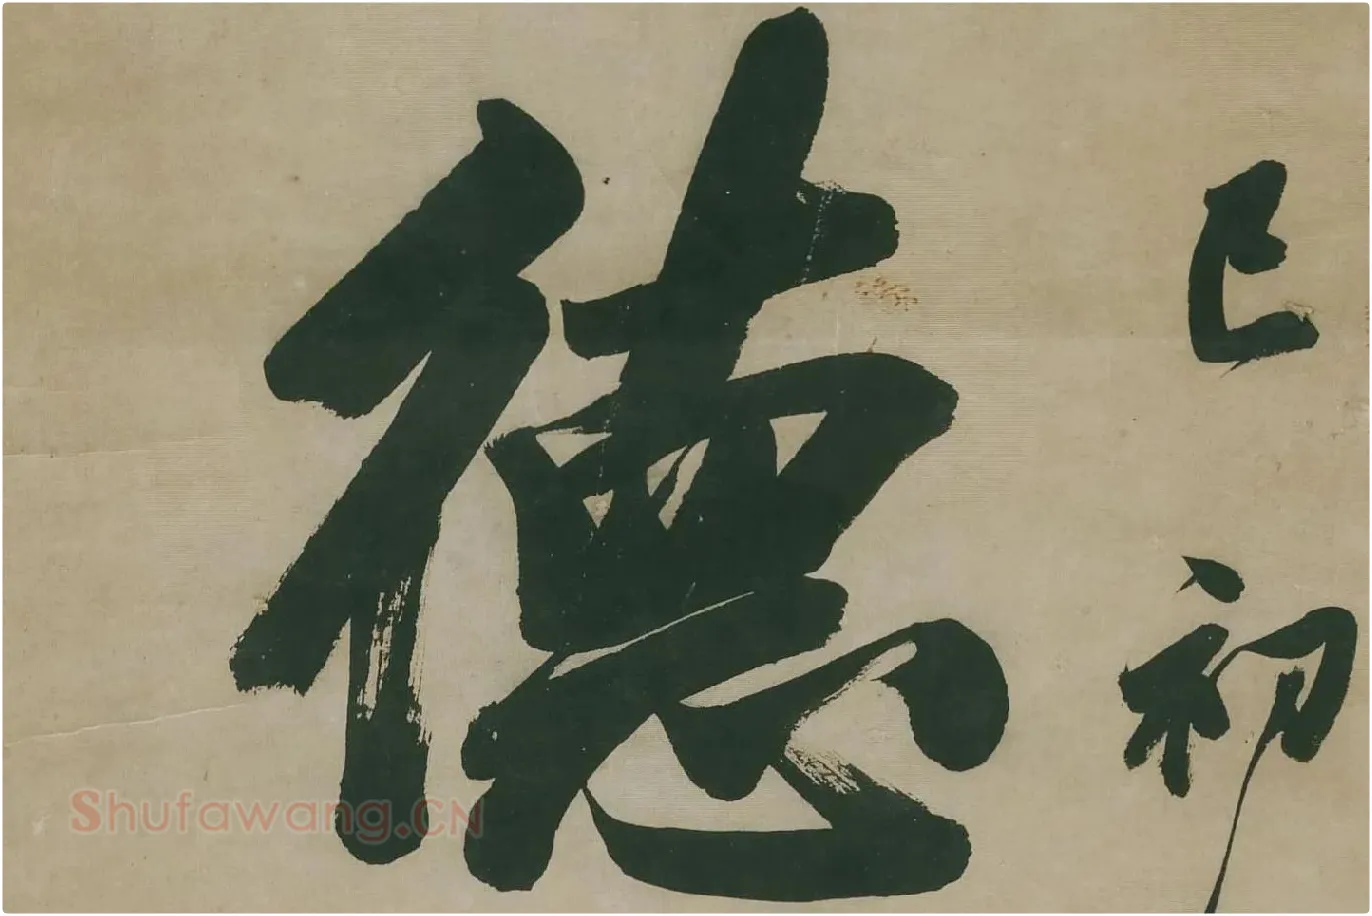 己初
德
Shufawang.CN